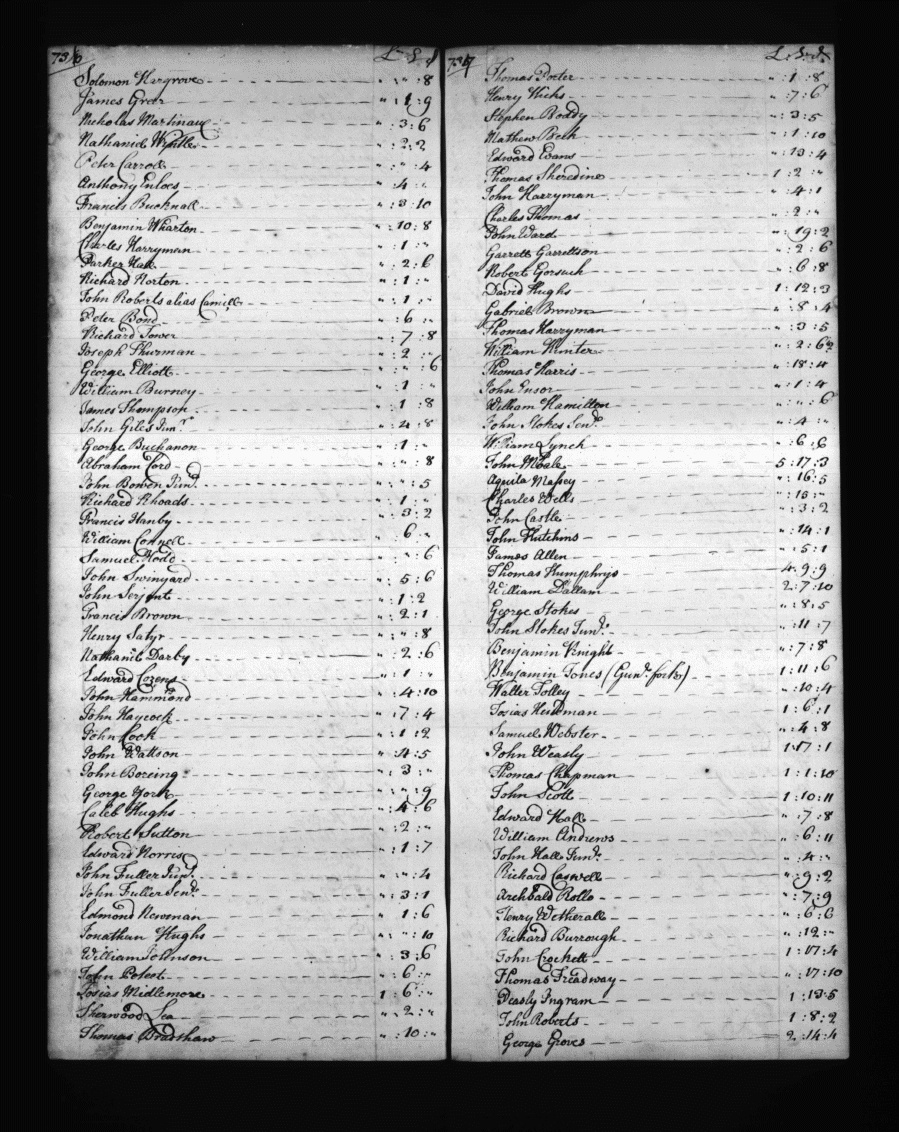 736 L S d
Solomon Hargrove „ „ :8
James Greer „ :1 :9
Nicholas Martinaux „ :3:6
Nathaniel „ :2:2
Peter Carroll „ : „ :4
Anthony Enloes „ :4 : „
Francis Bucknall „ :3 10
Benjamin Wharton „ :10:8
Charles Harryman „ :1 : „
Parker Hall „ :2:6
Richard Horton „ :1 : „
John Roberts alias Camill „ :1 : „
Peter Bond „ :6 : „
Richard Tower „ :7 :8
Joseph Thurman „ :2 : „
George Elliott „ : „ :6
William Burney „ :1 : „
James Thompson „ :1 :8
John Giles Junr „ :4 :8
George Buchanon „ :1 : „
Abraham Cord „ : „ :8
John Bowen Junr „ : „ :5
Richard Rhoads „ :1 : „
Francis Hanby „ :3:2
William Connell „ 6 : „
Samuel Hood „ : „ :6
John Swinyard „ :5:6
John Serjent „ :1:2
Francis Brown „ :2:1
Henry Satyr „ : „ :8
Nathaniel Darby „ :2 :6
Edward Cozens „ :1 : „
John Hammond „ :4:10
John Haycock „ :7:4
John Cook „ :1 :2
John Wattson „ :4:5
John Boreing „ :3 : „
George York „ : „ :9
Caleb Hughs „ :4:6
Robert Sutton „ :2 : „
Edward Norris „ :1:7
John Fuller Junr „ : „ :4
John Fuller Senr „ :3:1
Edmond Newman „ 1:6
Jonathan Hughs „ : „ :10
William Johnson „ :3:6
John Poleet „ :6 : „
Josias Midlemore 1 :6: „
Sherwood Lea „ :2: „
Thomas Bradshaw „ :10: „
737 L: S: d
Thomas Porter „ :1 :8
Henry Hicks „ :7 :6
Stephen Boddy „ :3 :5
Mathew Beck „ :1 :10
Edward Evans „ :13 :4
Thomas Sheredine 1 :2 : „
John Harryman „ :4:1
Charles Thomas „ :2 : „
John Ward „ :19:2
Garrett Garrettson „ :2 :6
Robert Gorsuch „ :6 :8
David Hughs 1:12:3
Gabriel Brown „ :8 :4
Thomas Harryman „ :3:5
William Hunter „ :2:6
Thomas Harris „ :18:4
John Ensor „ :1:4
William Hamilton „ : „ :6
John Stokes Senr „ :4 : „
William Lynch „ :6 :6
John Moale 5 :17 :3
Aquila Massey „ :16:5
Charles Wells „ :15: „
John Castle „ :3 :2
John Hutchins „ :14:1
James Allen „ :5:1
Thomas Humphrys 4: 9:9
William Dallam 2:7:10
George Stokes „ :8:5
John Stokes Junr „ :11 :7
Benjamin Knight „ :7:8
Benjamin Jones (Gunr forks) 1:11:6
Walter Tolley „ :10:4
Josias Hendman 1 :6:1
Samuel Webster „ :4:8
John Weasly 1:17:1
Thomas Chapman 1:1:10
John Scott 1:10:11
Edward Hall „ :7:8
William Andrews „ :6:11
John Hall Junr „ :4: „
Richard Caswell „ :9:2
Archbald Rollo „ :7:9
Henry Wetherall „ :6:6
Richard Burrough „ :12: „
John Crockett 1:17:4
Thomas Treadway „ :17:10
Peasly Ingram 1 :13:5
John Roberts 1 :8:2
George Groves 2:14:4